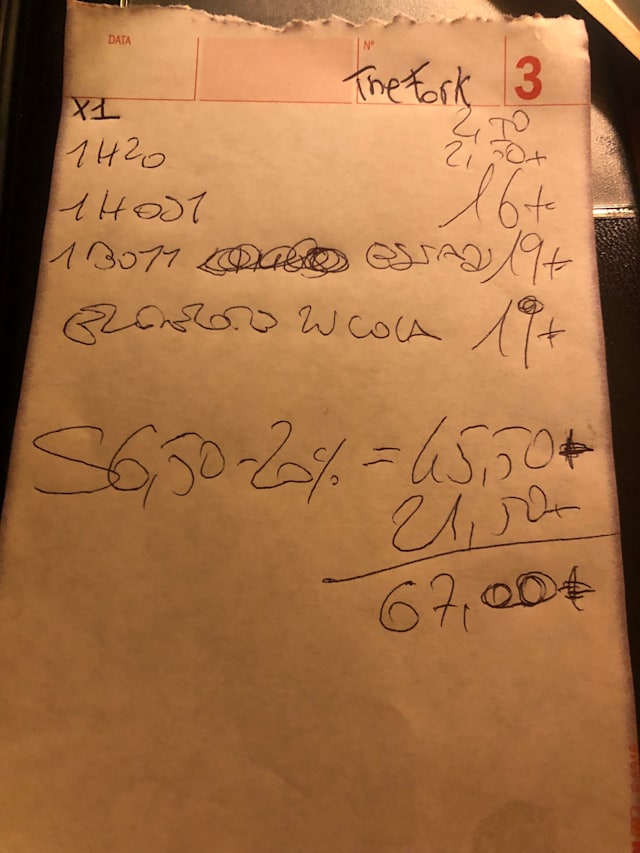 DATA
N°
TheFork
3
X1
2,50
1 H2O 2,50+
1 H001 16+
1 BOTT 19+
IN COLA 19+
56,50-20% = 45,50
21,50+
67,00